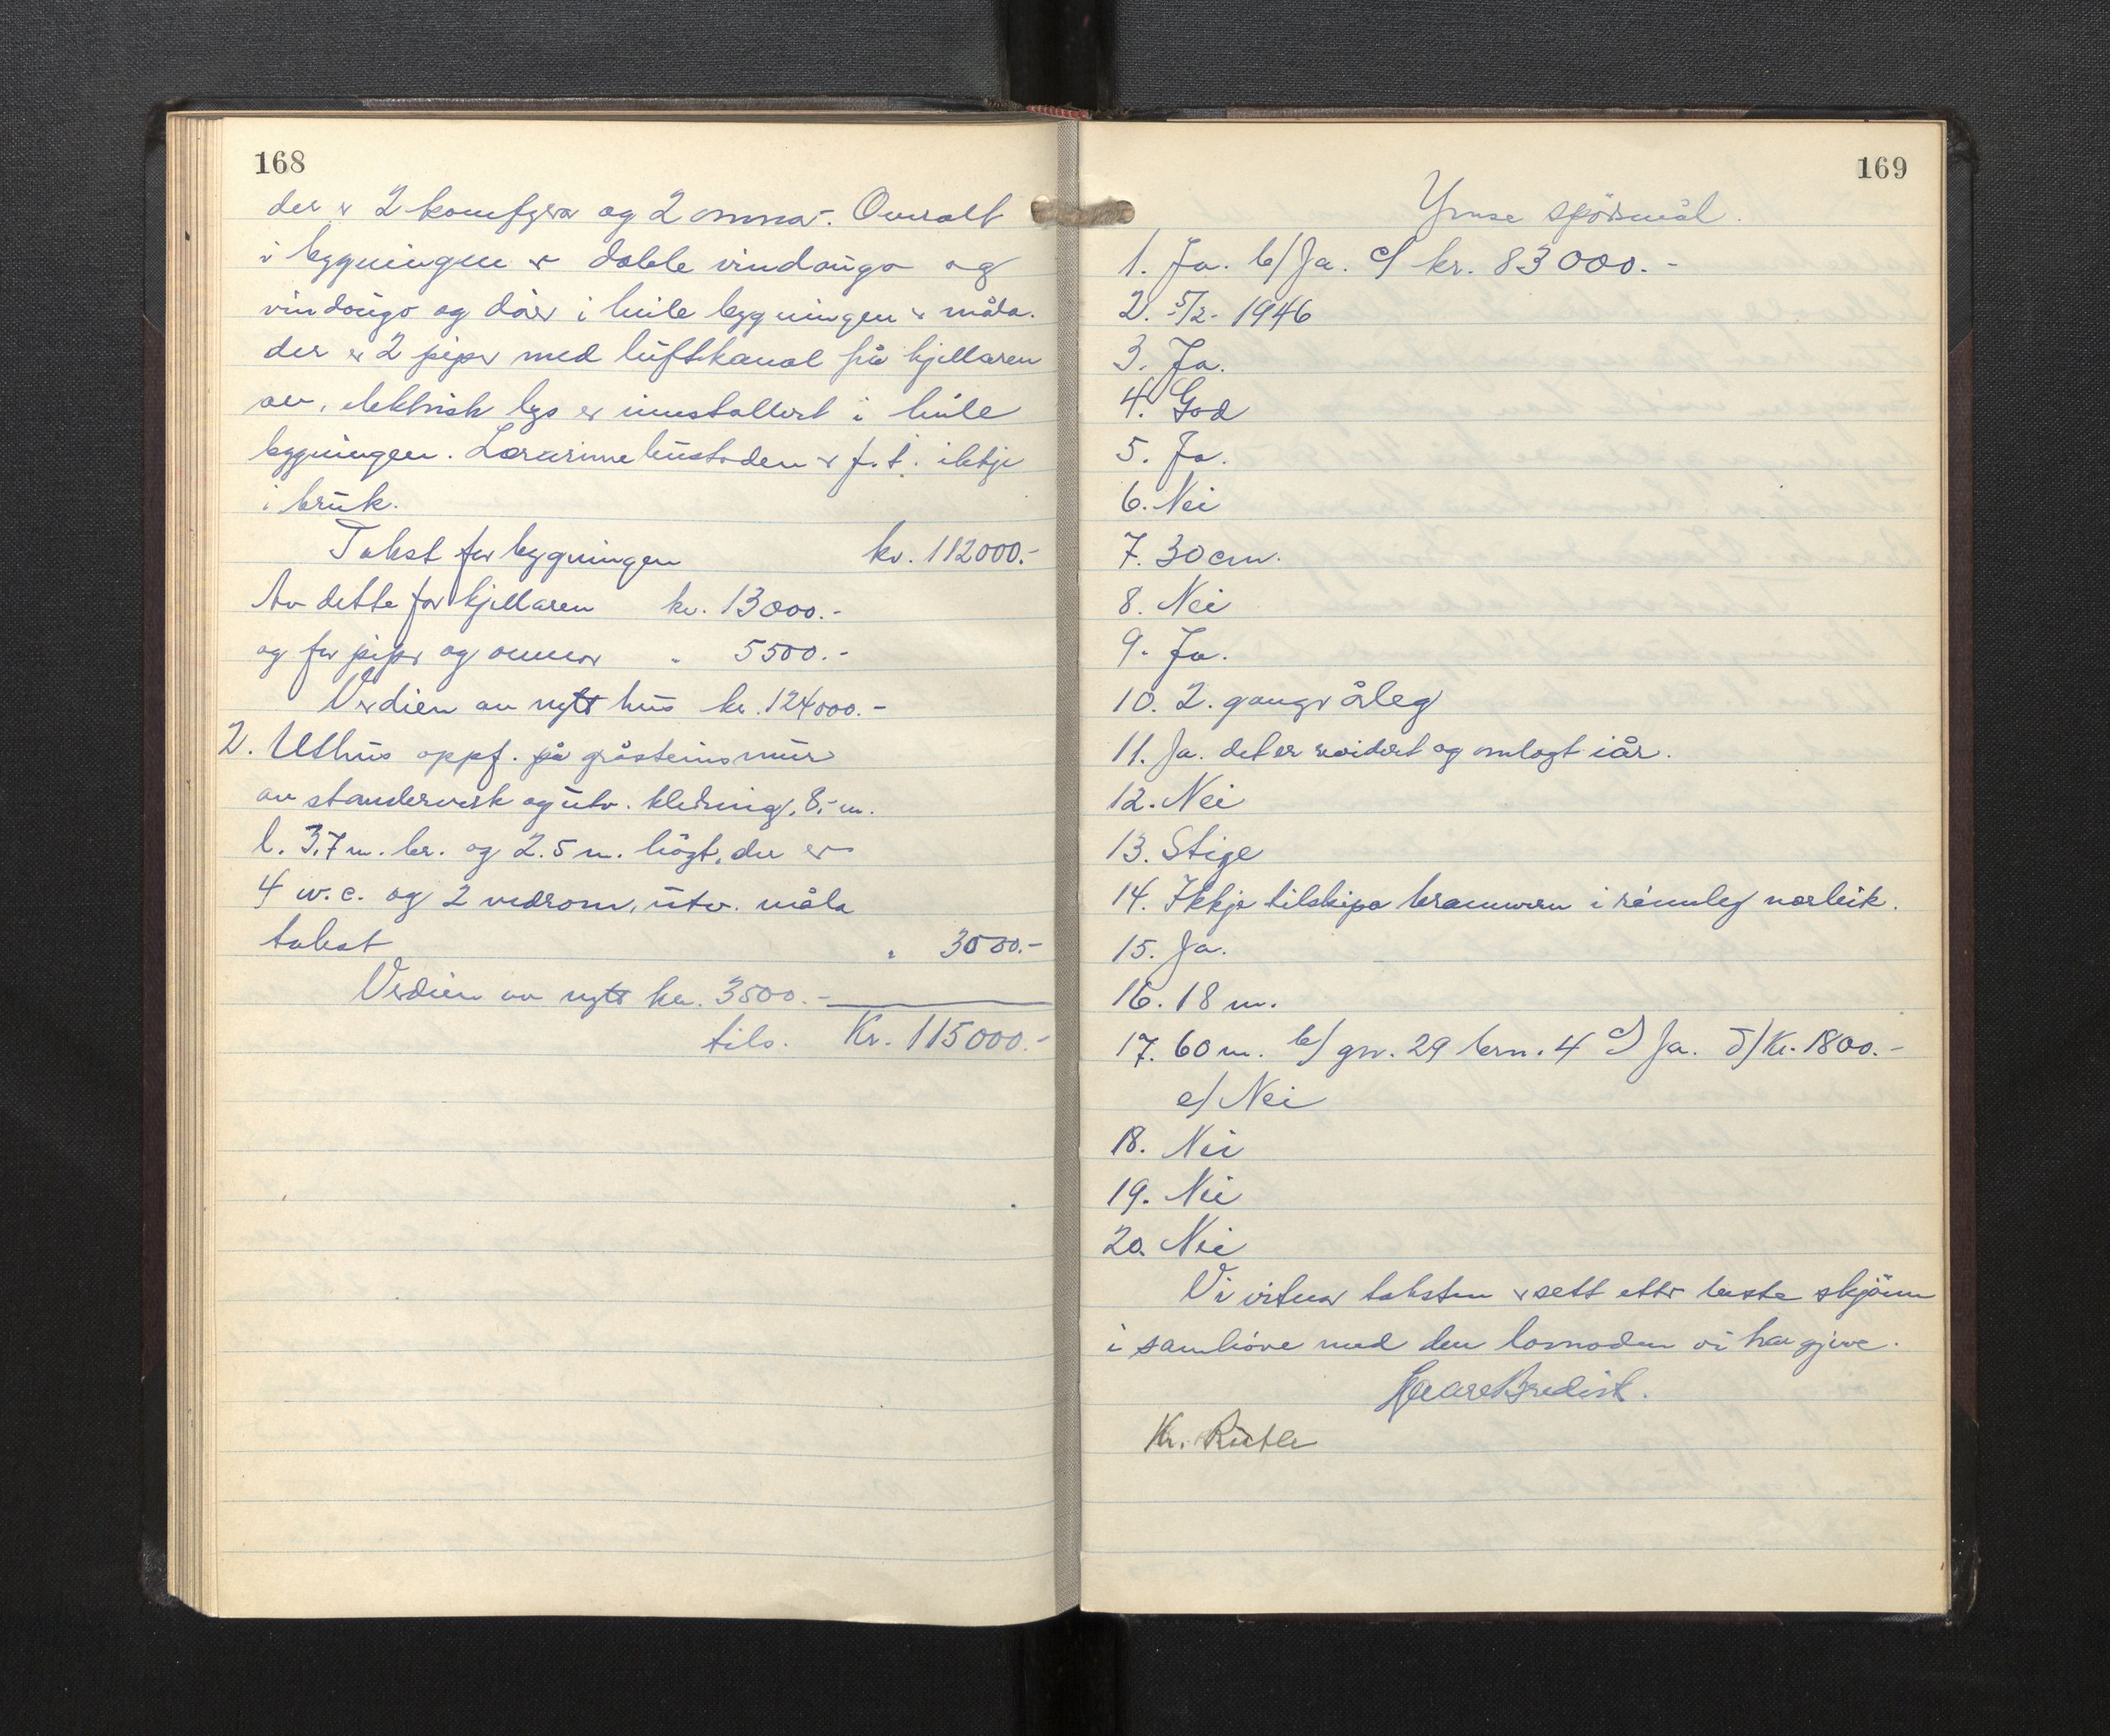 168
der er 2 komfyrar og 2 omnar. Overalt
i bygningen er doble vindaugo og
vindaugo og dører i heile bygningen er måla.
der er 2 piper med luftkanal frå kjellaren
av, elektrisk lys er innstallert i heile
bygningen. Lærarinnebustaden er f.t. ikkje
i bruk.
Takst for bygningen kr. 112000.-
Av dette for kjellaren kr. 13000.-
og for piper og omnar " 5500.-
Verdien av nytt hus kr. 124000.-
2. Uthus oppf. på gråsteinsmur
av standerverk og utv. kledning, 8,- m.
l. 3,7 m. br. og 2.5 m. högt, der er
4 w.c. og 2 vedrom, utv. måla
takst " 3000.-
Verdien av nytt kr. 3500.-
tils. Kr. 115000.-
169
Ymse spörsmål.
1. Ja. b/ Ja. c/ kr. 83000.-
2. 5/2- 1946
3. Ja.
4. God
5. Ja.
6. Nei
7. 30 cm.
8. Nei
9. Ja.
10. 2. gangr årleg
11. Ja. det er reidert og omlagt iår.
12. Nei
13. Stige
14. Ikkje tilskipa brannvern i rimeleg nærleik.
15. Ja.
16. 18 m.
17. 60 m. b/ gn. 29 brn. 4 c/ Ja. d/ Kr. 1800.-
e/ Nei
18. Nei
19. Nei
20. Nei
Vi vitnar taksten er sett etter beste skjönn
i samhöve med den lovnaden vi har gjeve.
Kr. Rutle